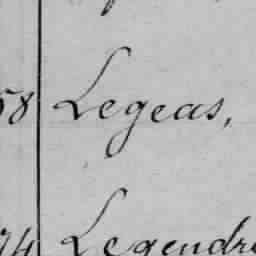 58 Legeas,
74 Legendre